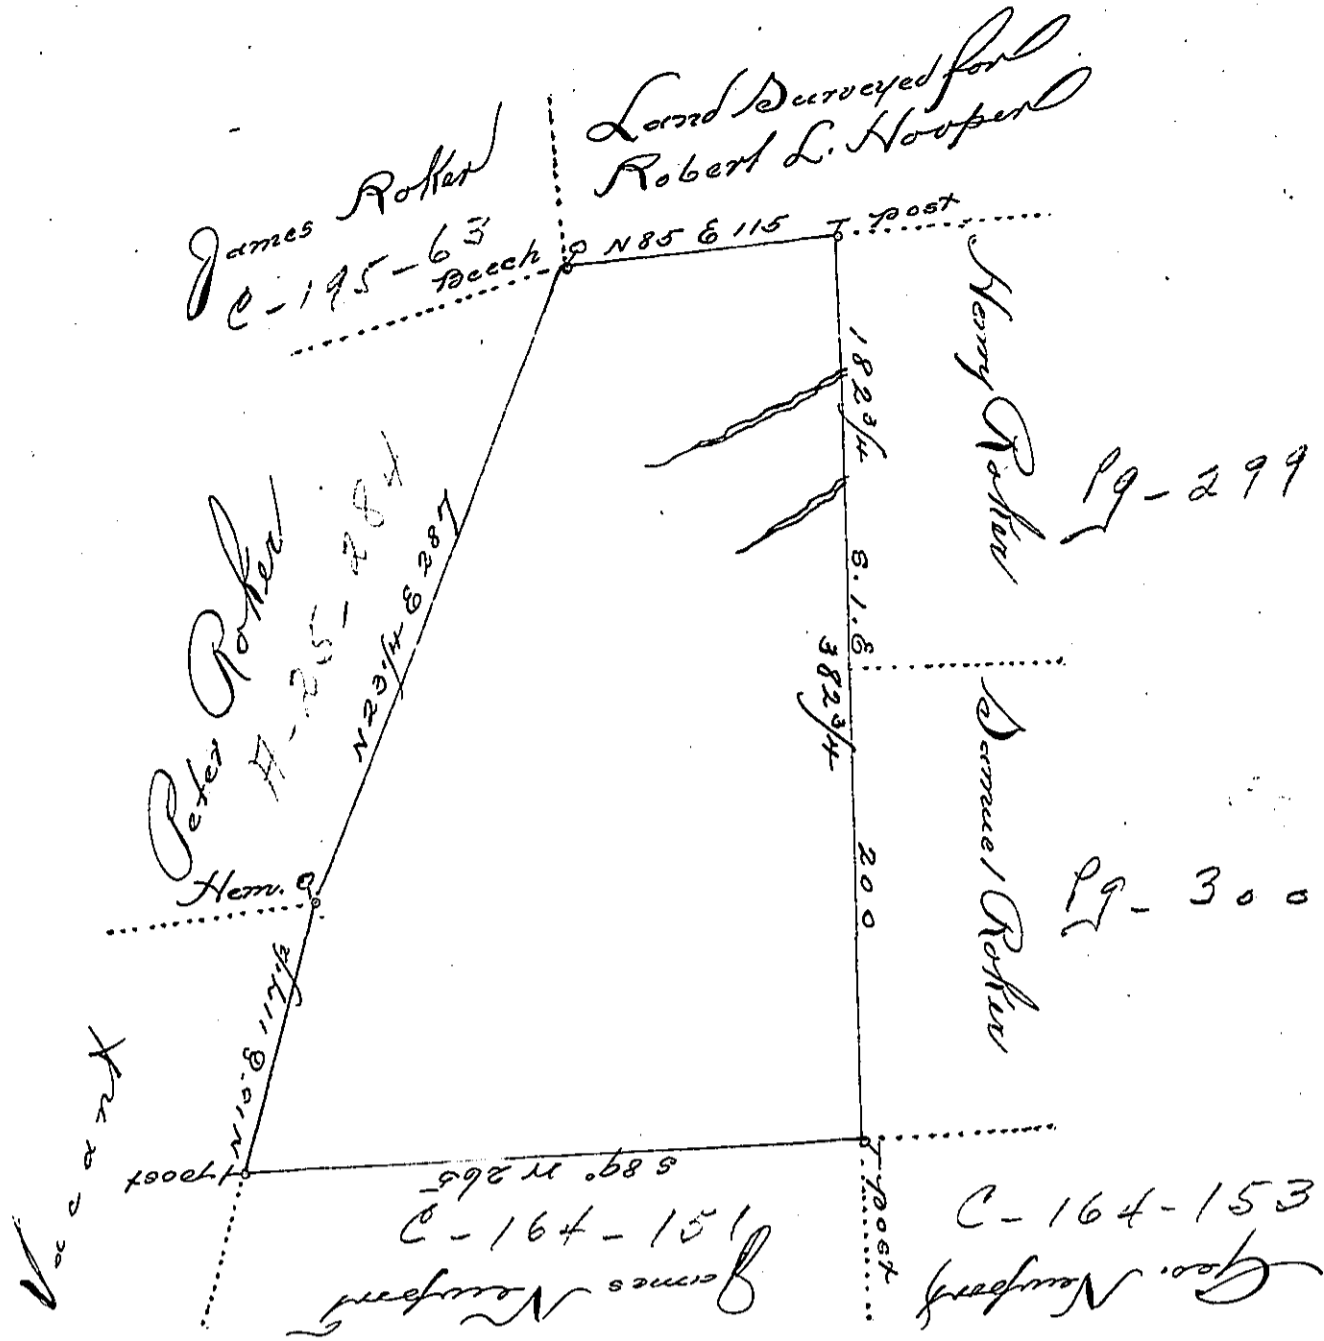 Land Surveyed for
Robert L. Hooper
James Roker
C-195-63
Beech
N 85 E 115
post
Henry Roker
Pg-299
182 3/4
S. 1. E
382 3/4
200
Samuel Roker
Pg-300
Peter Roker
A-25-284
N 23 1/4 E 287
Hem.
N 15 E 117 1/2
Vacant
post
S 89° W 265
C-164-151
James Newport
post
C-164-153
Geo. Newport